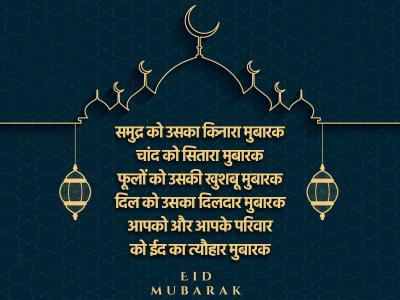 समुद्र को उसका किनारा मुबारक
चांद को सितारा मुबारक
फूलों को उसकी खुशबू मुबारक
दिल को उसका दिलदार मुबारक
आपको और आपके परिवार
को ईद का त्यौहार मुबारक
EID
MUBARAK